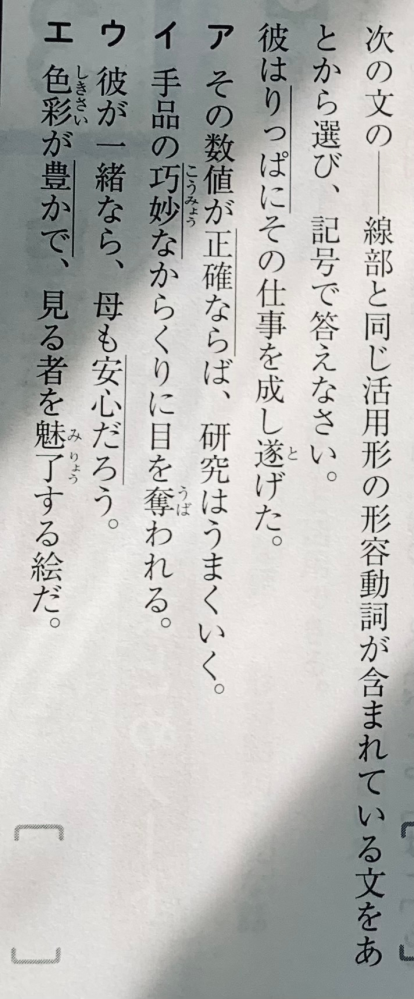 次の文の――線部と同じ活用形の形容動詞が含まれている文をあ
とから選び、記号で答えなさい。
彼はりっぱにその仕事を成し遂げた。
ア その数値が正確ならば、研究はうまくいく。
イ 手品の巧妙なからくりに目を奪われる。
ウ 彼が一緒なら、母も安心だろう。
エ 色彩が豊かで、見る者を魅了する絵だ。